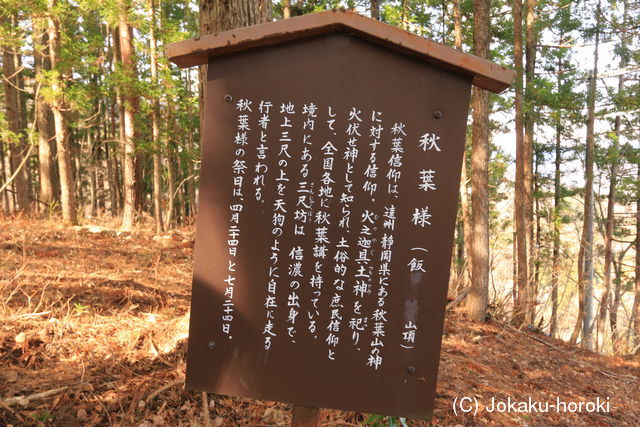 秋葉様（飯 山頂）
秋葉信仰は、遠州静岡県にある秋葉山の神
に対する信仰。火之迦具土神を祀り、
火伏せ神として知られ、土俗的な庶民信仰と
して、全国各地に秋葉講を持っている。
境内にある三尺坊は信濃の出身で、
地上三尺の上を天狗のように自在に走る
行者と言われる。
秋葉様の祭日は、四月二十四日と七月二十四日。
(C) Jokaku-horoki